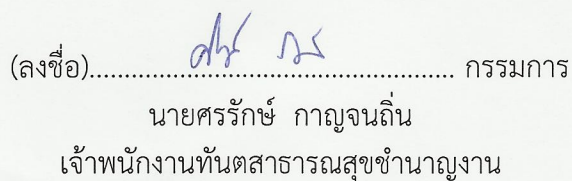 (ลงชื่อ)........................................................ กรรมการ
นายศรรักษ์ กาญจนถิ่น
เจ้าพนักงานทันตสาธารณสุขชำนาญงาน